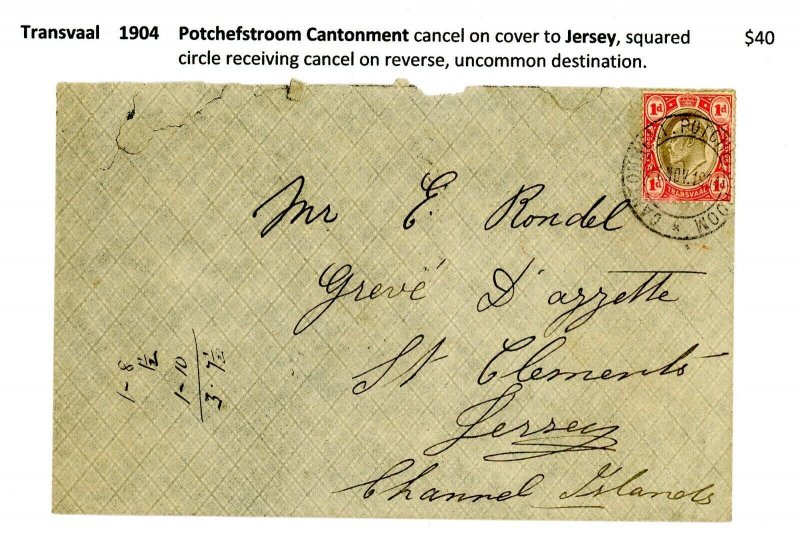 Transvaal 1904 Potchefstroom Cantonment cancel on cover to Jersey, squared $40
circle receiving cancel on reverse, uncommon destination.
1d 1d
NOV. 10
1d 1d
TRANSVAAL
Mr E. Rondel
Grevé D'azzette
St Clements
Jersey
Channel Islands
1-8
1½
1-10
3.7½